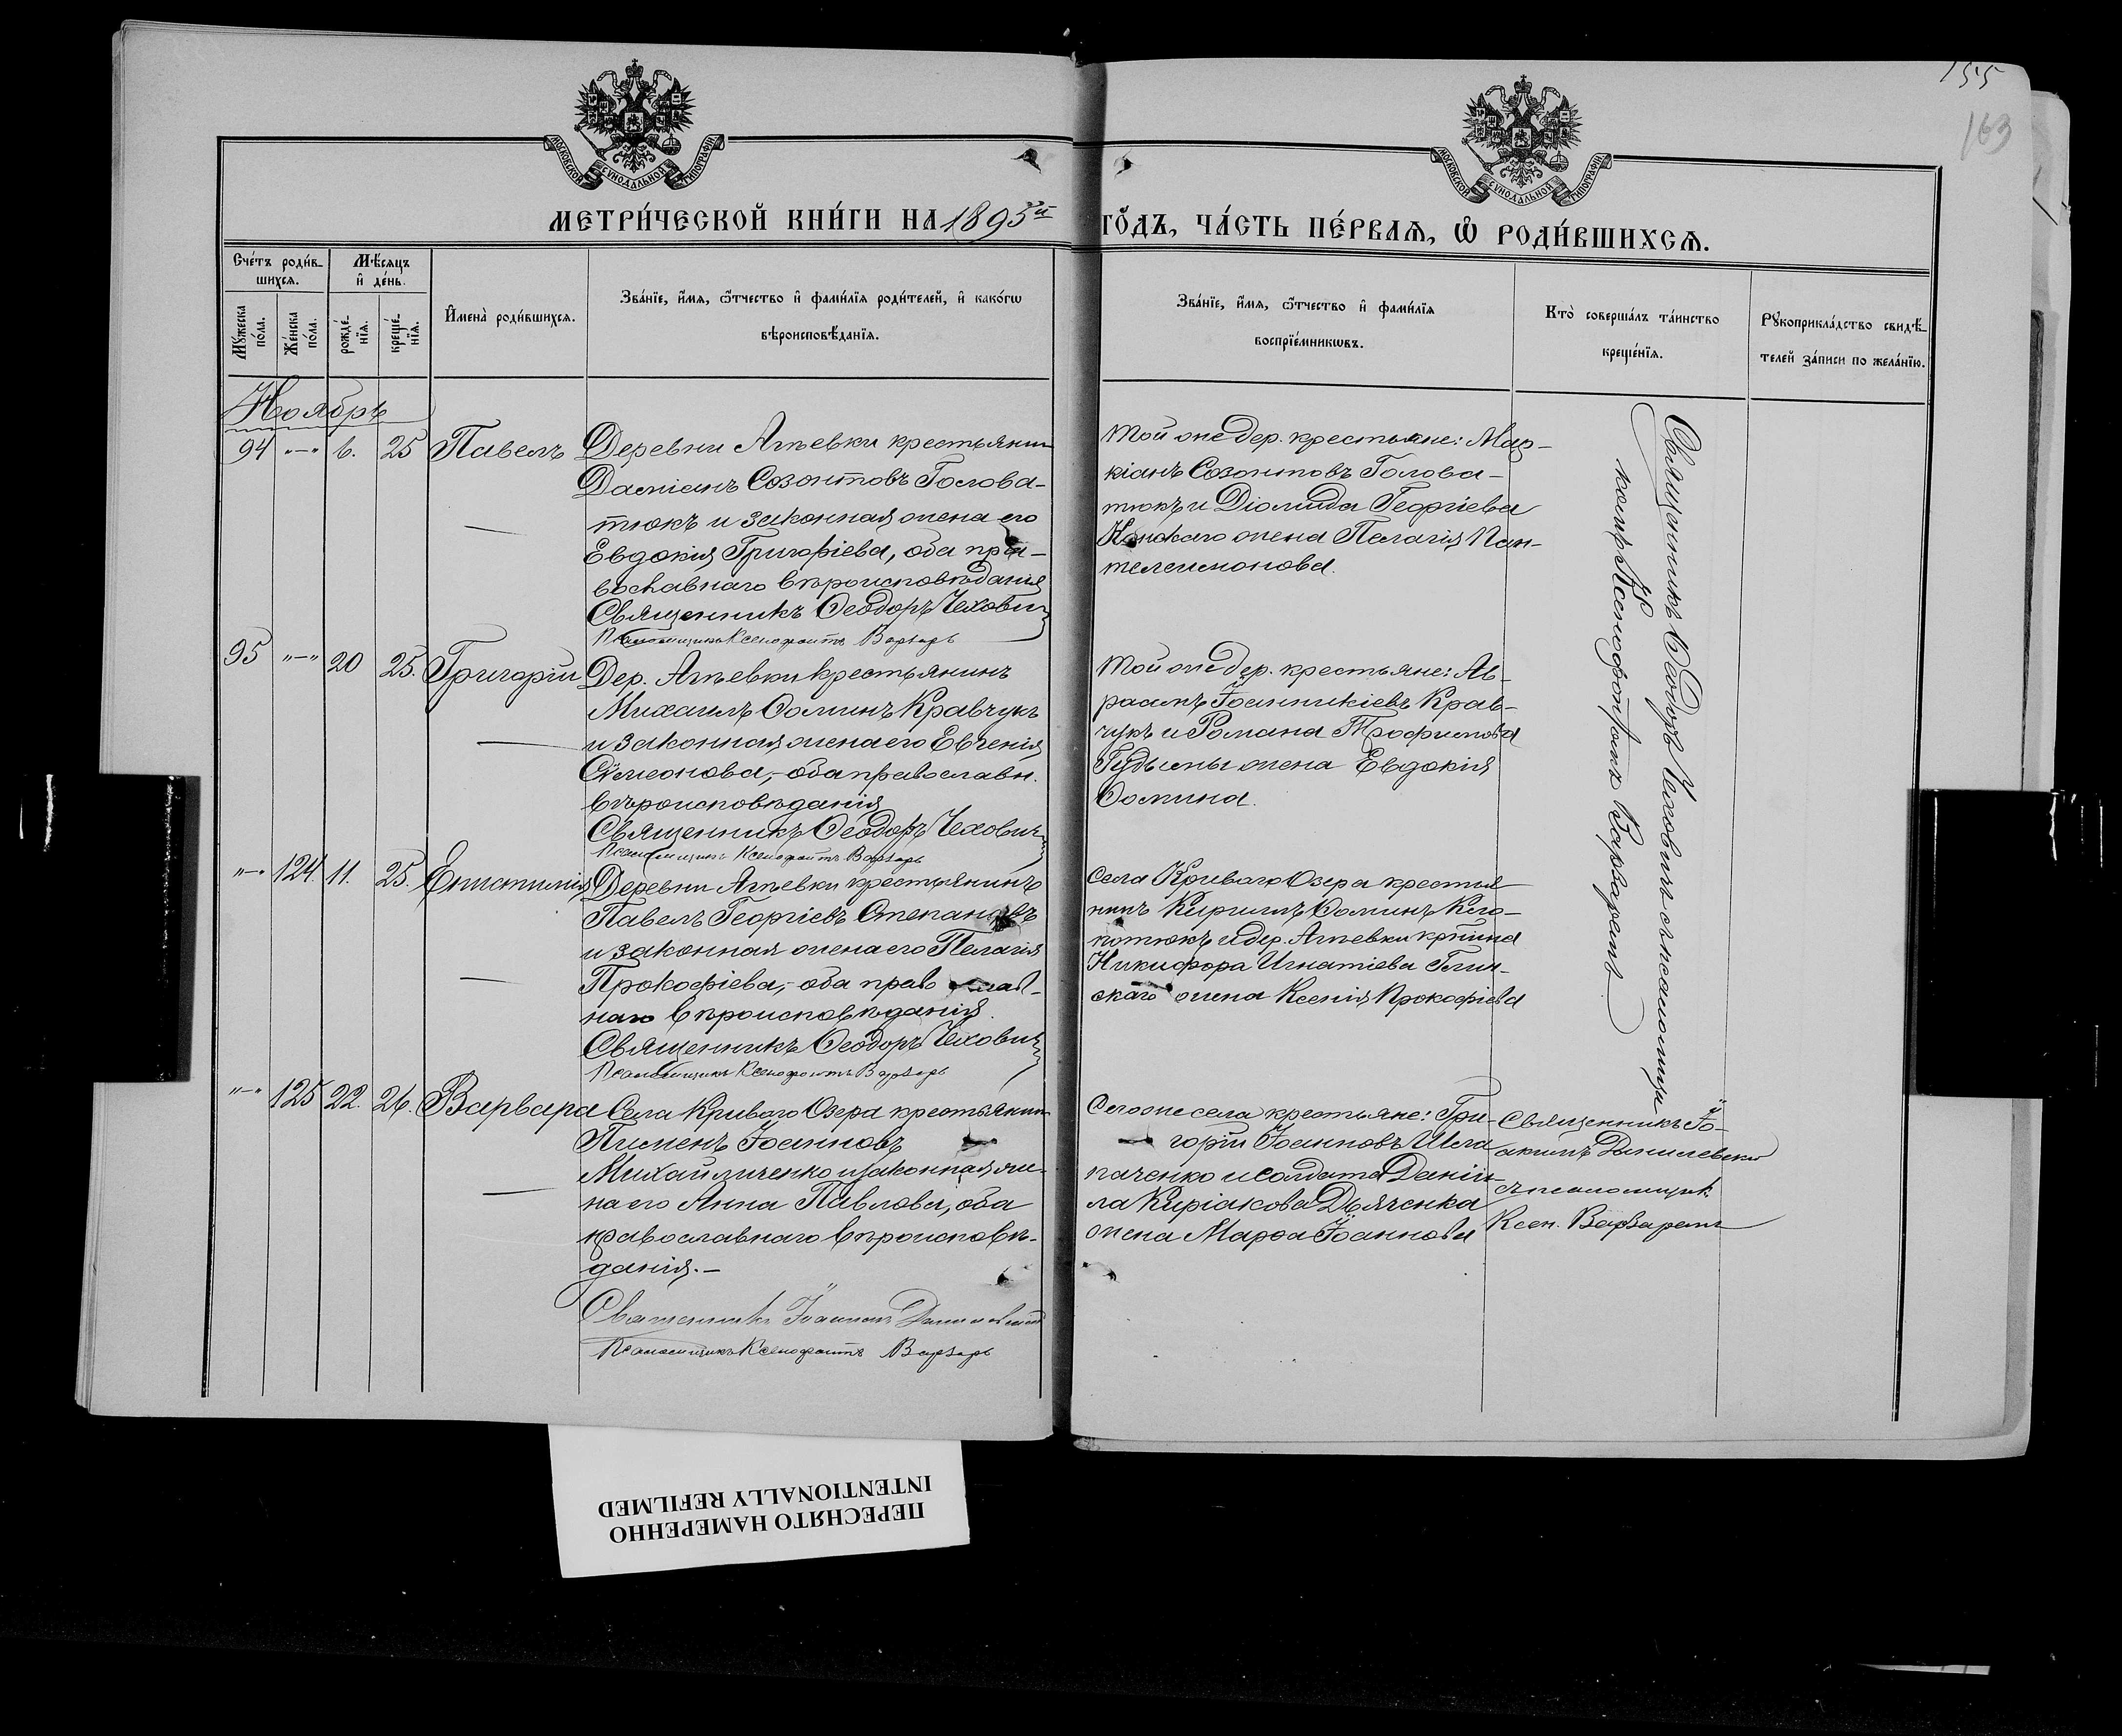 155
163
МОСКОВСКОЙ СѴНОДАЛЬНОЙ ТИПОГРАФІИ
МОСКОВСКОЙ СѴНОДАЛЬНОЙ ТИПОГРАФІИ
МЕТРИ́ЧЕСКОЙ КНИ́ГИ НА 1895й
ГО́ДЪ, ЧА́СТЬ ПЕ́РВАѦ, Ѡ РОДИ́ВШИХСѦ.
Сче́тъ роди́в-
шихсѧ.
Мѣ́сѧцъ
и҆ де́нь.
Мꙋ́жеска
по́ла.
Же́нска
по́ла.
рожде́-
нїѧ.
креще́-
нїѧ.
И҆мена̀ роди́вшихсѧ.
Зва́нїе, и҆́мѧ, ѻ҆́тчество и҆ фами́лїѧ роди́телей, и҆ како́гѡ
вѣроисповѣ́данїѧ.
Зва́нїе, и҆́мѧ, ѻ҆́тчество и҆ фами́лїѧ
воспрїе́мникѡвъ.
Кто̀ соверша́лъ та́инство
креще́нїѧ.
Рꙋкоприкла́дство свидѣ́-
телей за́писи по жела́нїю.
Ноябрь
94 "–" 6. 25 Павелъ
Деревни Агѣевки крестьянин
Даміанъ Созонтовъ Голова-
тюкъ и законная жена его
Евдокія Григоріева, оба пра-
вославнаго вѣроисповѣданія
Священникъ Ѳеодоръ Чехович
Псаломщикъ Ксенофонтъ Варварь
Той же дер. крестьяне: Мар-
кіанъ Созонтовъ Голова-
тюкъ и Діомида Георгіева
жена Пелагія Пан-
телеимонова.
Священникъ Ѳеодоръ Чеховичъ съ псаломщи-
комъ Ксенофонтомъ Варваремъ.
95 "–" 20 25. Григорій
Дер. Агѣевки крестьянинъ
Михаилъ Ѳоминъ Кравчукъ
и законная жена его Евгенія
Сѵмеонова, – оба православн.
вѣроисповѣданія
Священникъ Ѳеодоръ Чехович
Псаломщикъ Ксенофонтъ Варварь
Той же дер. крестьяне: Ав-
раамъ Іоанникіевъ Крав-
чукъ и Романа Трофимова
Гудымы жена Евдокія
Ѳомина.
"–" 124. 11. 25. Епистимія
Деревни Агѣевки крестьянинъ
Павелъ Георгіевъ Степановъ
и законная жена его Пелагія
Прокофіева, – оба православ-
наго вѣроисповѣданія.
Священникъ Ѳеодоръ Чехович
Псаломщикъ Ксенофонтъ Варварь
Села Криваго Озера крестья
нинъ Кириллъ Ѳоминъ
и дер. Агѣевки крѣнина
Никифора Игнатіева Глин-
скаго жена Ксенія Прокофіева
"–" 125 22. 26. Варвара
Села Криваго Озера крестьянин
Пименъ Іоанновъ
Михайличенко и законная же-
на его Анна Павлова, оба
православнаго вѣроисповѣ-
данія. –
Священникъ Даниловскій
Псаломщикъ Ксенофонтъ Варварь
Сего же села крестьяне: Гри-
горій Іоанновъ Шла
паченко и солдата Даніи-
ла Киріакова Дьяченка
жена Марѳа Іоаннова
Священникъ Іо-
акимъ Данилевскій
съ псаломщик.
Ксен. Варваремъ
ПЕРЕСНЯТО НАМЕРЕННО
INTENTIONALLY REFILMED